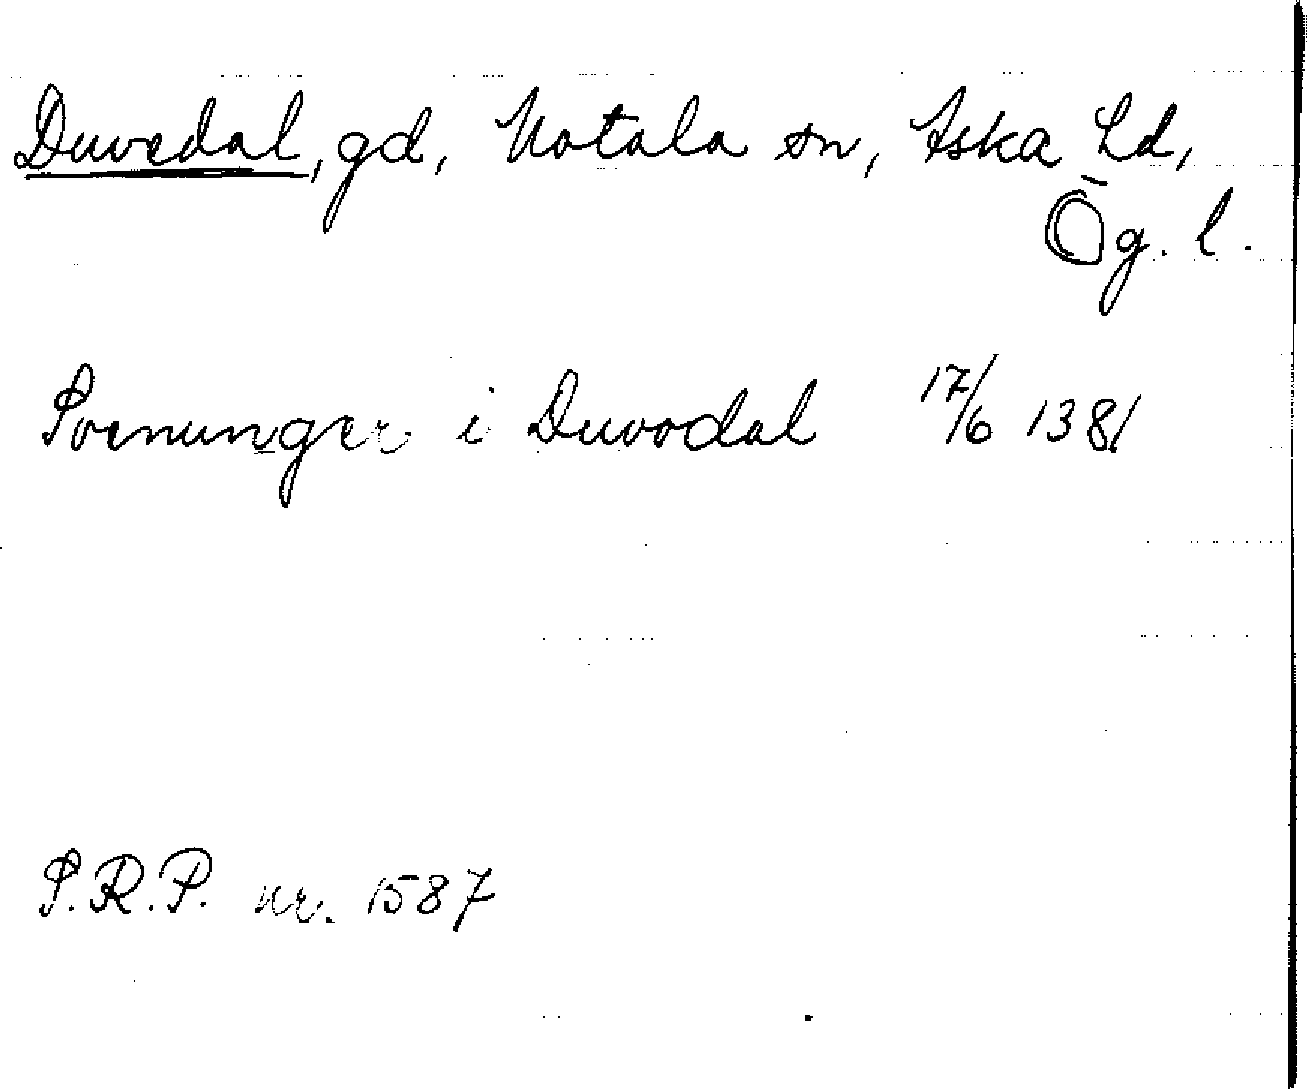 Duvedal, gd, Motala sn, Aska hd,
Ög. l.
Svenunger i Duvodal 17/6 1381
S.R.P. nr. 1587